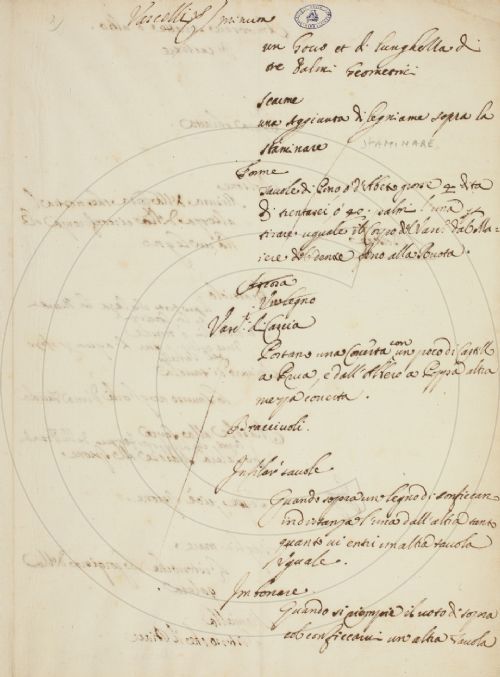 Vascelli
un Govo et di lunghella di
tre Palmi Geometrici
seame
una Aggiunta di legniame sopra la
staminare STAMINARE
Forme
tavole di Pino ò d'Abeto grosse 4 dita
di trentasei ò 40: palmi l'una
tirare uguale il Corpo del Vasc.
dente fino alla Ruota.
Ancora
Un legno
Vasc.li di Caccia
Portano una Coverta con un poco di Castell
a Prua, e dall'Albero a Poppa altra
meza coverta.
Braccivoli.
Infilar tavole
Quando sopra un legno si conficcan
in distanza l'una dall'altra tanto
quanto vi entri un altra tavola
Uguale.
Imbonare
Quando si riempie il voto di sopra
col conficcarvi un'altra tavola